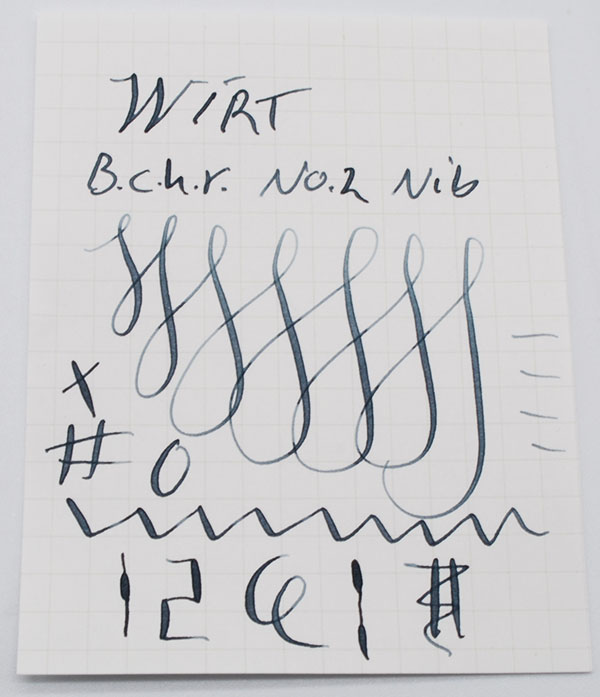 WIRT
B.c.h.r. No.2 Nib
x
# 0